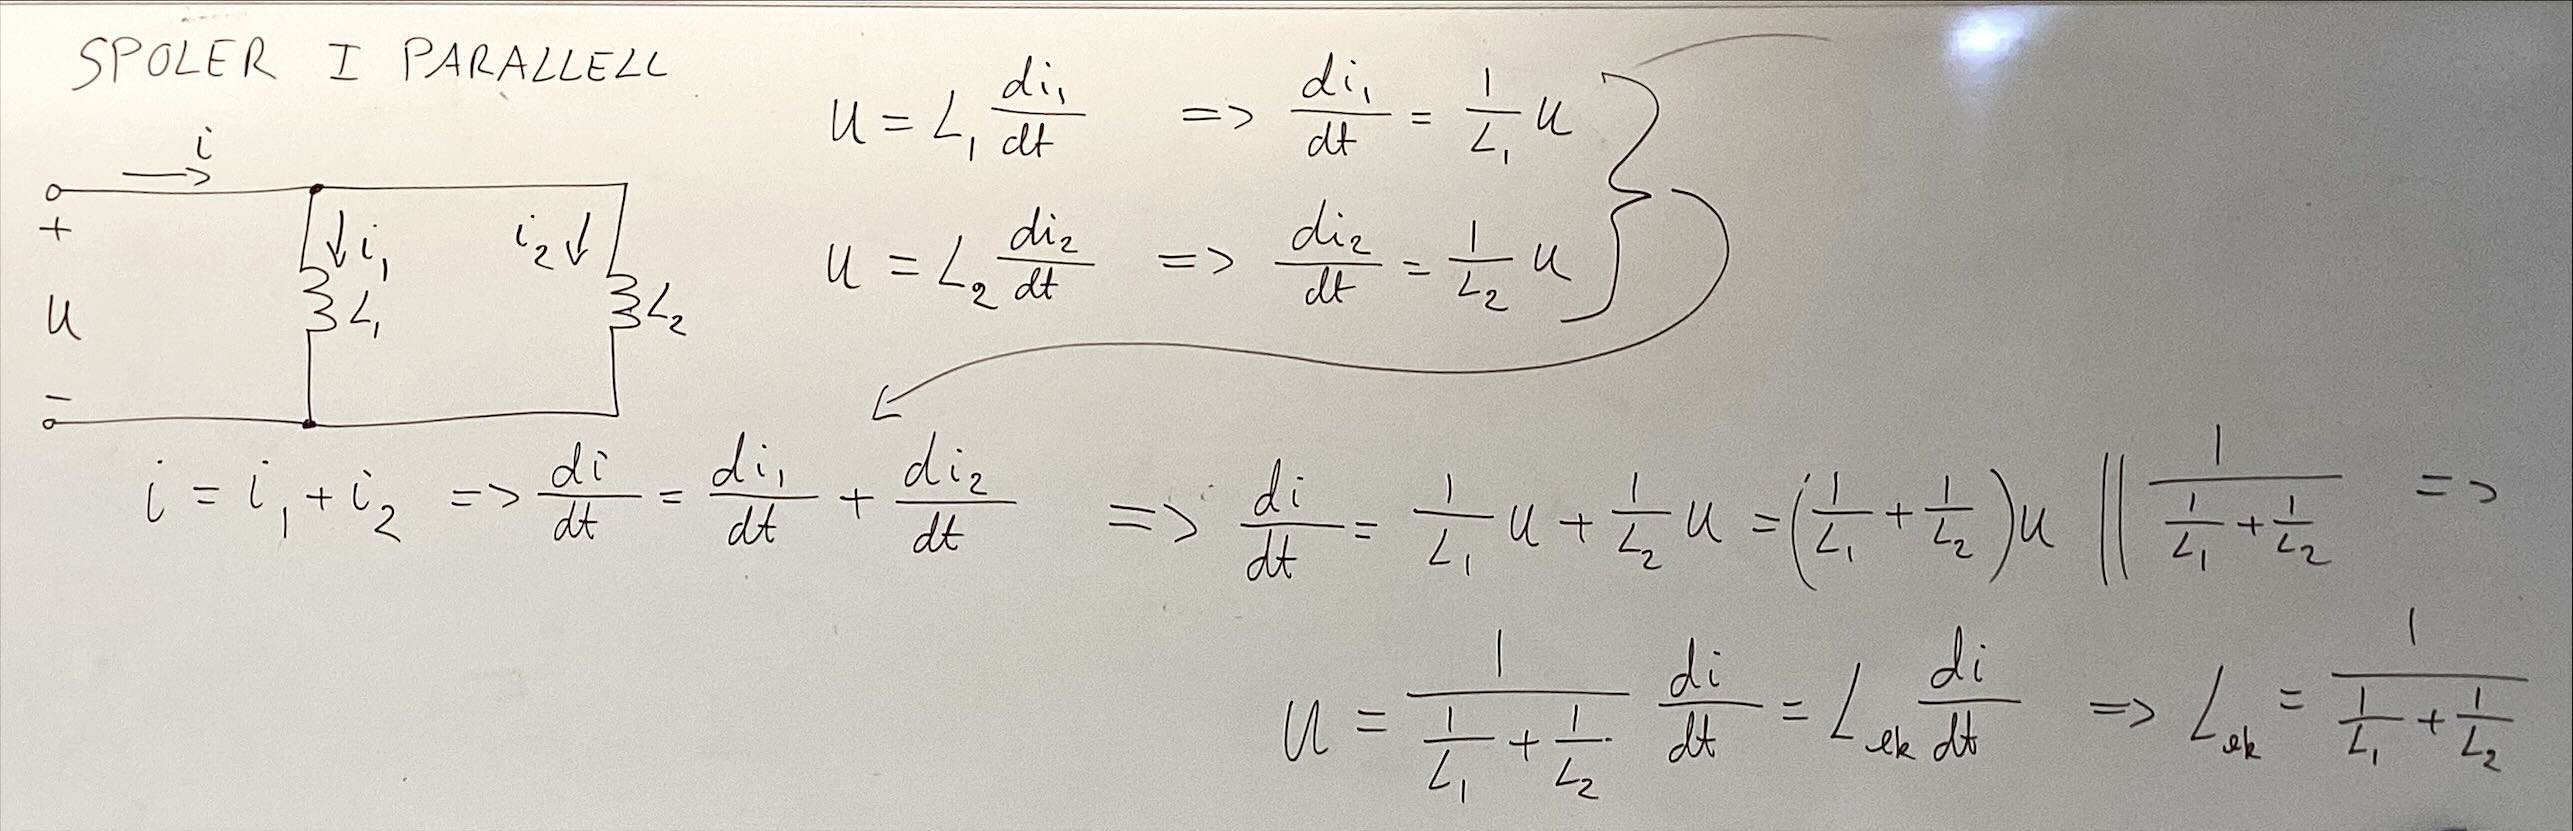 SPOLER I PARALLELL
i
+
u
-
i₁
L₁
i₂
L₂
u = L₁ di₁/dt => di₁/dt = 1/L₁ u
u = L₂ di₂/dt => di₂/dt = 1/L₂ u
i = i₁ + i₂ => di/dt = di₁/dt + di₂/dt => di/dt = 1/L₁ u + 1/L₂ u = (1/L₁ + 1/L₂) u || 1/(1/L₁ + 1/L₂) =>
u = 1/(1/L₁ + 1/L₂) di/dt = Lek di/dt => Lek = 1/(1/L₁ + 1/L₂)